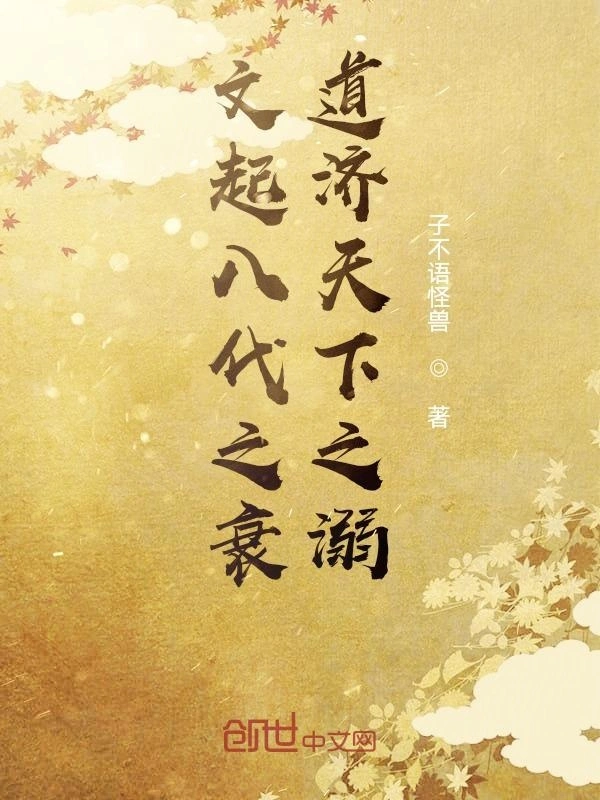 文起八代之衰
道济天下之溺
子不语怪兽 ◎ 著
创世中文网